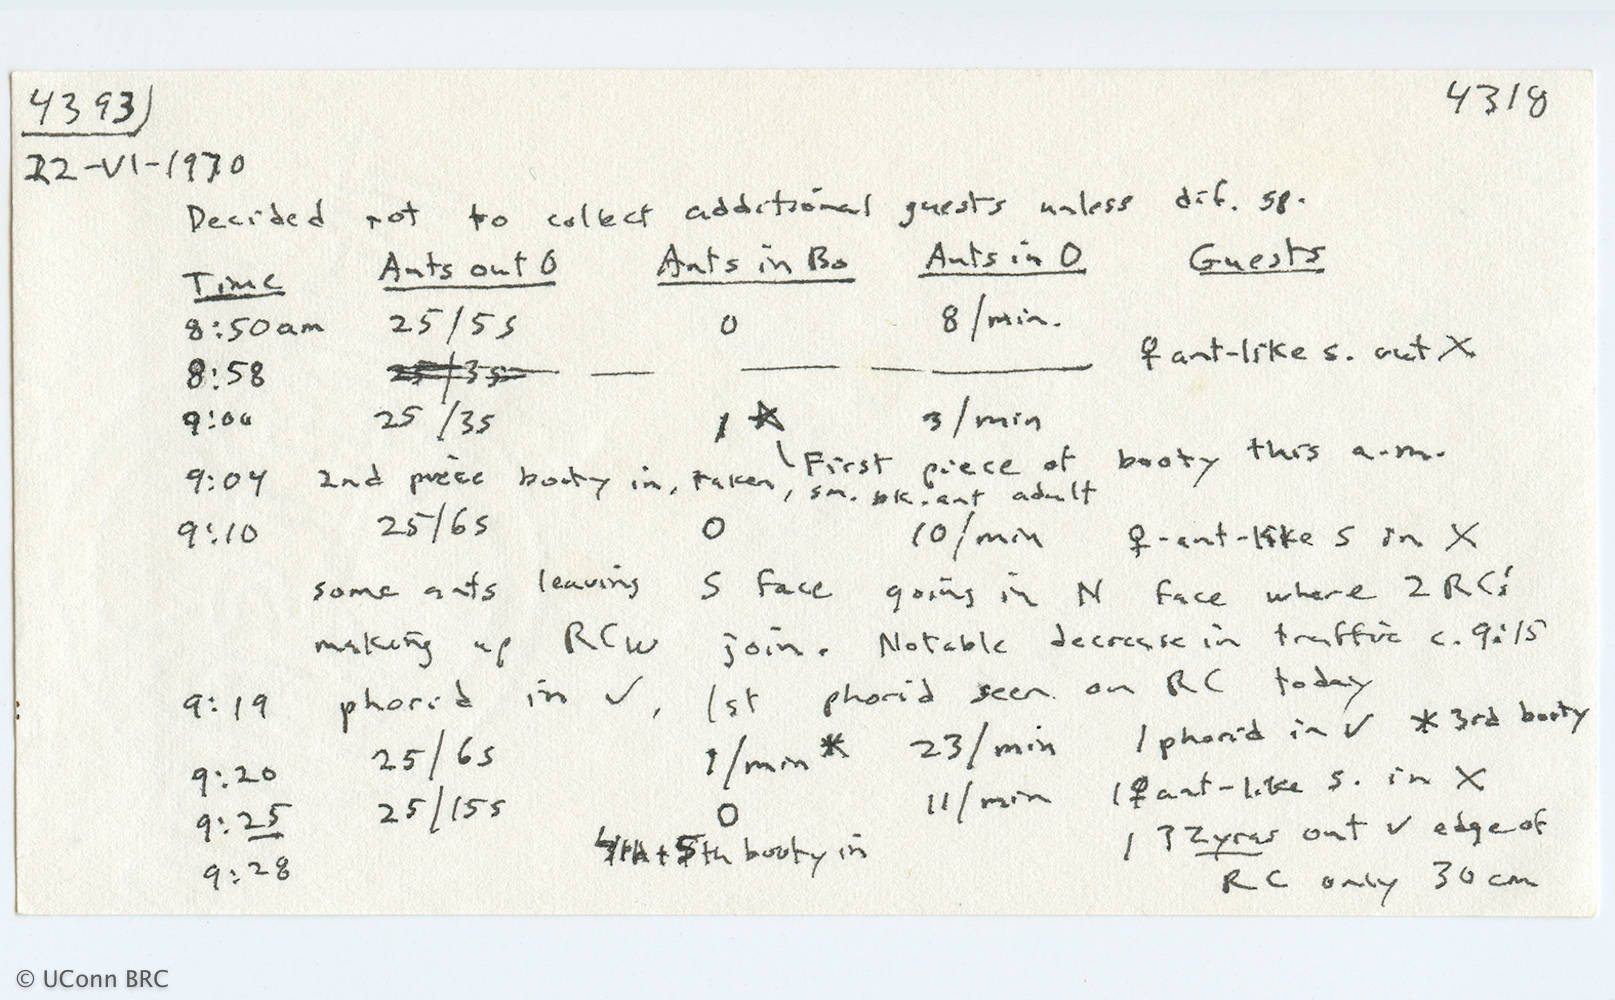 4393) 4318
22-VI-1970
Decided not to collect additional guests unless dif. sp.
Time Ants out O Ants in Bo Ants in O Guests
8:50am 25/5s 0 8/min.
8:58 25/3s — — — — ♀ ant-like s. out X
9:00 25/3s 1* 3/min
First piece of booty this a.m.
9:04 2nd piece booty in, taken, sm. bk. ant adult
9:10 25/6s 0 10/min ♀-ant-like s in X
some ants leaving S face going in N face where 2 RC's
making up RCW join. Notable decrease in traffic c. 9:15
9:19 phorid in ✓, 1st phorid seen on RC today
9:20 25/6s 1/min* 23/min 1 phorid in ✓ *3rd booty
9:25 25/15s 0 11/min 1♀ant-like s. in X
9:28 4th + 5th booty in 1 ? Zyras out ✓ edge of
RC only 30cm
© UConn BRC